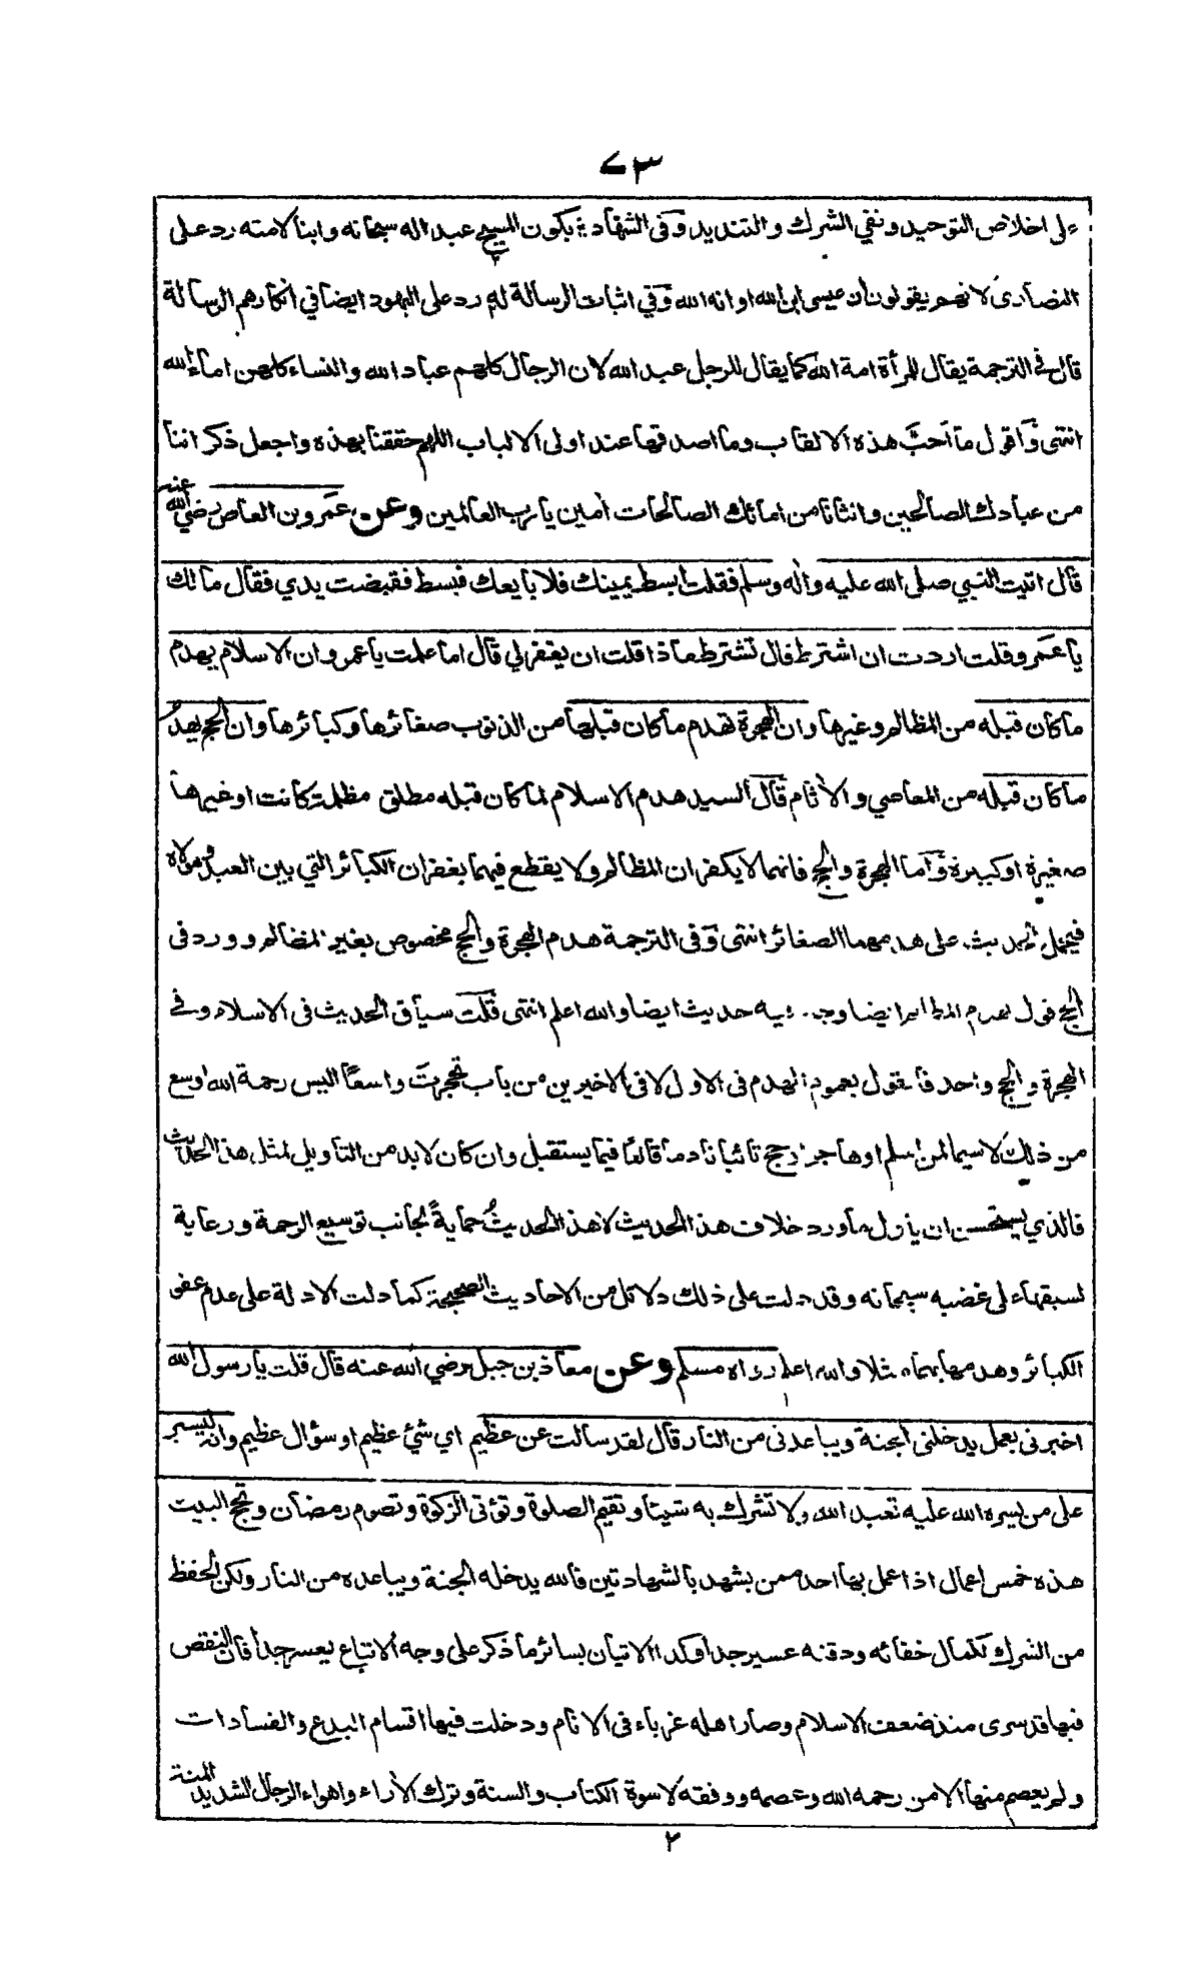 ٧٣
على اخلاص التوحيد ونفي الشرك والتنديد وفى الشهادة بكون المسيح عبد اله سبحانه وابنا لامته رد على
النصارى لانهم يقولون ان عيسى ابن الله او انه الله وفي اثبات الرسالة له رد على اليهود ايضا في انكارهم الرسالة
قال في الترجمة يقال للمرأة امة الله كما يقال للرجل عبد الله لان الرجال كلهم عباد الله والنساء كلهن اماء الله
انتهى واقول ما احبّ هذه الالقاب وما اصدقها عند اولى الالباب اللهم حققنا بهذه واجعل ذكراننا
من عبادك الصالحين واناثنا من امائك الصالحات آمين يا رب العالمين وعن عمرو بن العاص رضي الله عنه
قال اتيت النبي صلى الله عليه واله وسلم فقلت ابسط يمينك فلابايعك فبسط فقبضت يدي فقال مالك
يا عمرو قلت اردت ان اشترط قال تشترط ماذا قلت ان يغفر لي قال اما علمت يا عمرو ان الاسلام يهدم
ما كان قبله من المظالم وغيرها وان الهجرة تهدم ما كان قبلها من الذنوب صغائرها وكبائرها وان الحج يهدم
ما كان قبله من المعاصي والآثام قال السيد هدم الاسلام لما كان قبله مطلق مظلمة كانت او غيرها
صغيرة او كبيرة واما الهجرة والحج فانهما لا يكفران المظالم ولا يقطع فيهما بغفران الكبائر التي بين العبد ومولاه
فيحمل الحديث على هدمهما الصغائر انتهى وفى الترجمة هدم الهجرة والحج مخصوص بغير المظالم وورد فى
الحج قول بهدم المظالم ايضا وجاء فيه حديث ايضا والله اعلم انتهى قلت سياق الحديث فى الاسلام وفي
الهجرة والحج واحد فالقول بعموم الهدم فى الاول لا فى الاخيرين من باب تحجرت واسعًا اليس رحمة الله اوسع
من ذلك لا سيما لمن اسلم او هاجر او حج تائبا نادما قالعا فيما يستقبل وان كان لا بد من التأويل لمثل هذا الحديث
فالذي يستحسن ان يأول ما ورد خلاف هذا الحديث لا هذا الحديثُ حمايةً لجانب توسيع الرحمة ورعاية
لسبقها على غضبه سبحانه وقد دلت على ذلك دلائل من الاحاديث الصحيحة كما دلت الادلة على عدم عفو
الكبائر وهدمها بهما مثلا والله اعلم رواه مسلم وعن معاذ بن جبل رضي الله عنه قال قلت يا رسول الله
اخبرنى بعمل يدخلنى الجنة ويباعدنى من النار قال لقد سألت عن عظيم اي شئ عظيم او سؤال عظيم وانه ليسير
على من يسره الله عليه تعبد الله ولا تشرك به شيئا وتقيم الصلوة وتؤتى الزكوة وتصوم رمضان وتحج البيت
هذه خمس اعمال اذا عمل بها احد ممن يشهد بالشهادتين فالله يدخله الجنة ويباعده من النار ولكن الحفظ
من الشرك لكمال خفائه ودقته عسير جدا وكذا الاتيان بسائر ما ذكر على وجه الاتباع يعسر جدا فان النقص
فيها قد سرى منذ ضعف الاسلام وصار اهله غرباء فى الانام ودخلت فيها اقسام البدع والفسادات
ولم يعصم منها الا من رحمه الله وعصمه ووفقه لاسوة الكتاب والسنة وترك الآراء واهواء الرجال الشديد المنة
٢